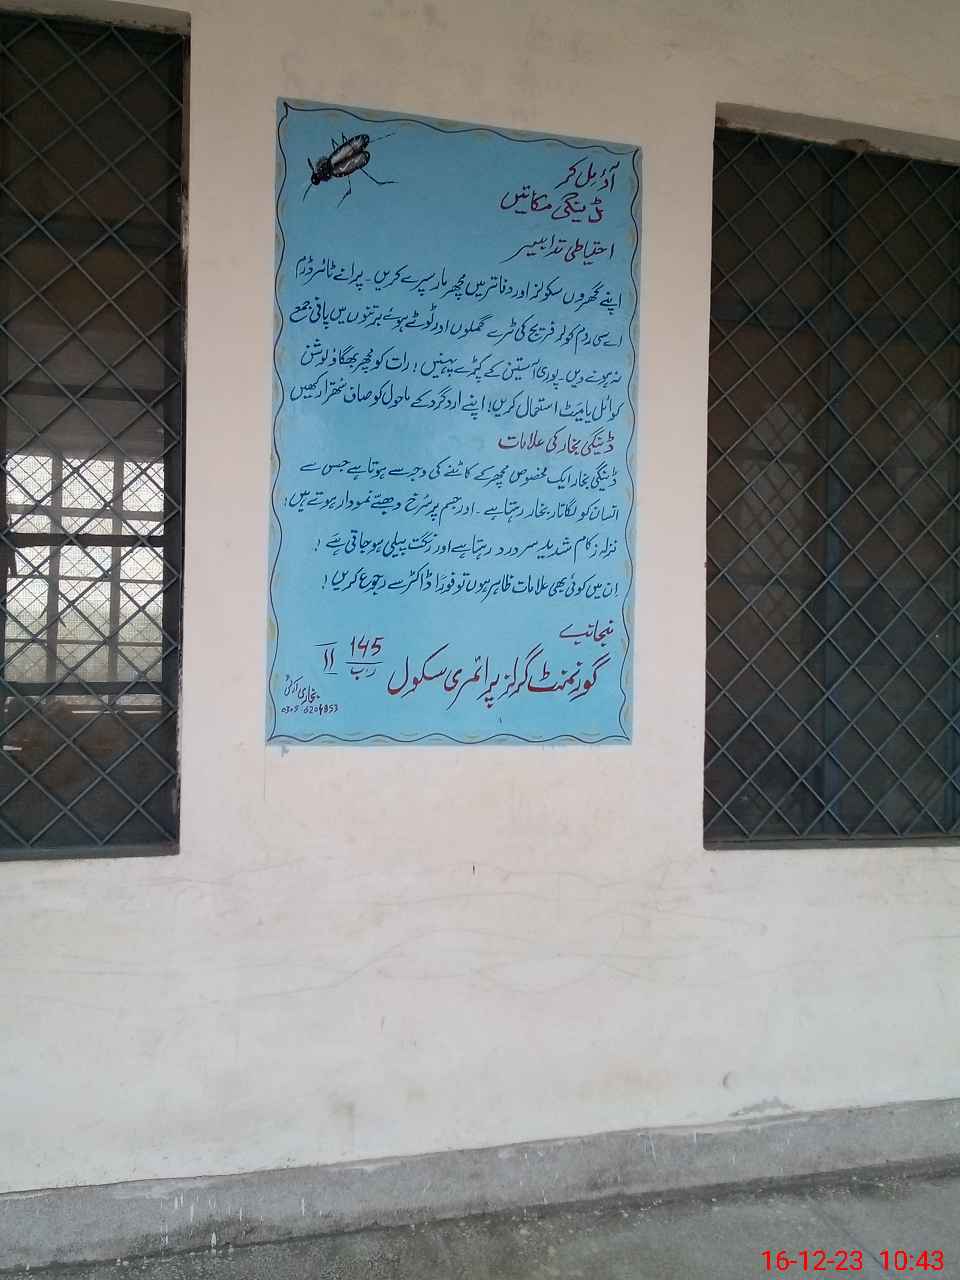 آؤ مِل کر
ڈینگی مکائیں
احتیاطی تدابیر
اپنے گھروں سکولز اور دفاتر میں مچھر مار سپرے کریں۔ پرانے ٹائر ڈرم
اے سی روم کولر فریج کی ٹرے گملوں اور ٹوٹے ہوئے برتنوں میں پانی جمع
نہ ہونے دیں۔ پوری آستین کے کپڑے پہنیں! رات کو مچھر بھگاؤ لوشن
کوائل یا میٹ استعمال کریں! اپنے اردگرد کے ماحول کو صاف ستھرا رکھیں
ڈینگی بخار کی علامات
ڈینگی بخار ایک مخصوص مچھر کے کاٹنے کی وجہ سے ہوتا ہے جس سے
انسان کو لگاتار بخار رہتا ہے۔ اور جسم پر سُرخ دھبے نمودار ہوتے ہیں!
نزلہ زکام شدید سر درد رہتا ہے اور رنگت پیلی ہو جاتی ہے!
اِن میں کوئی بھی علامات ظاہر ہوں تو فوراً ڈاکٹر سے رجوع کریں!
منجانب
گورنمنٹ گرلز پرائمری سکول 145 ر۔ب II
بخاری آرٹ
0305-6204953
16-12-23 10:43